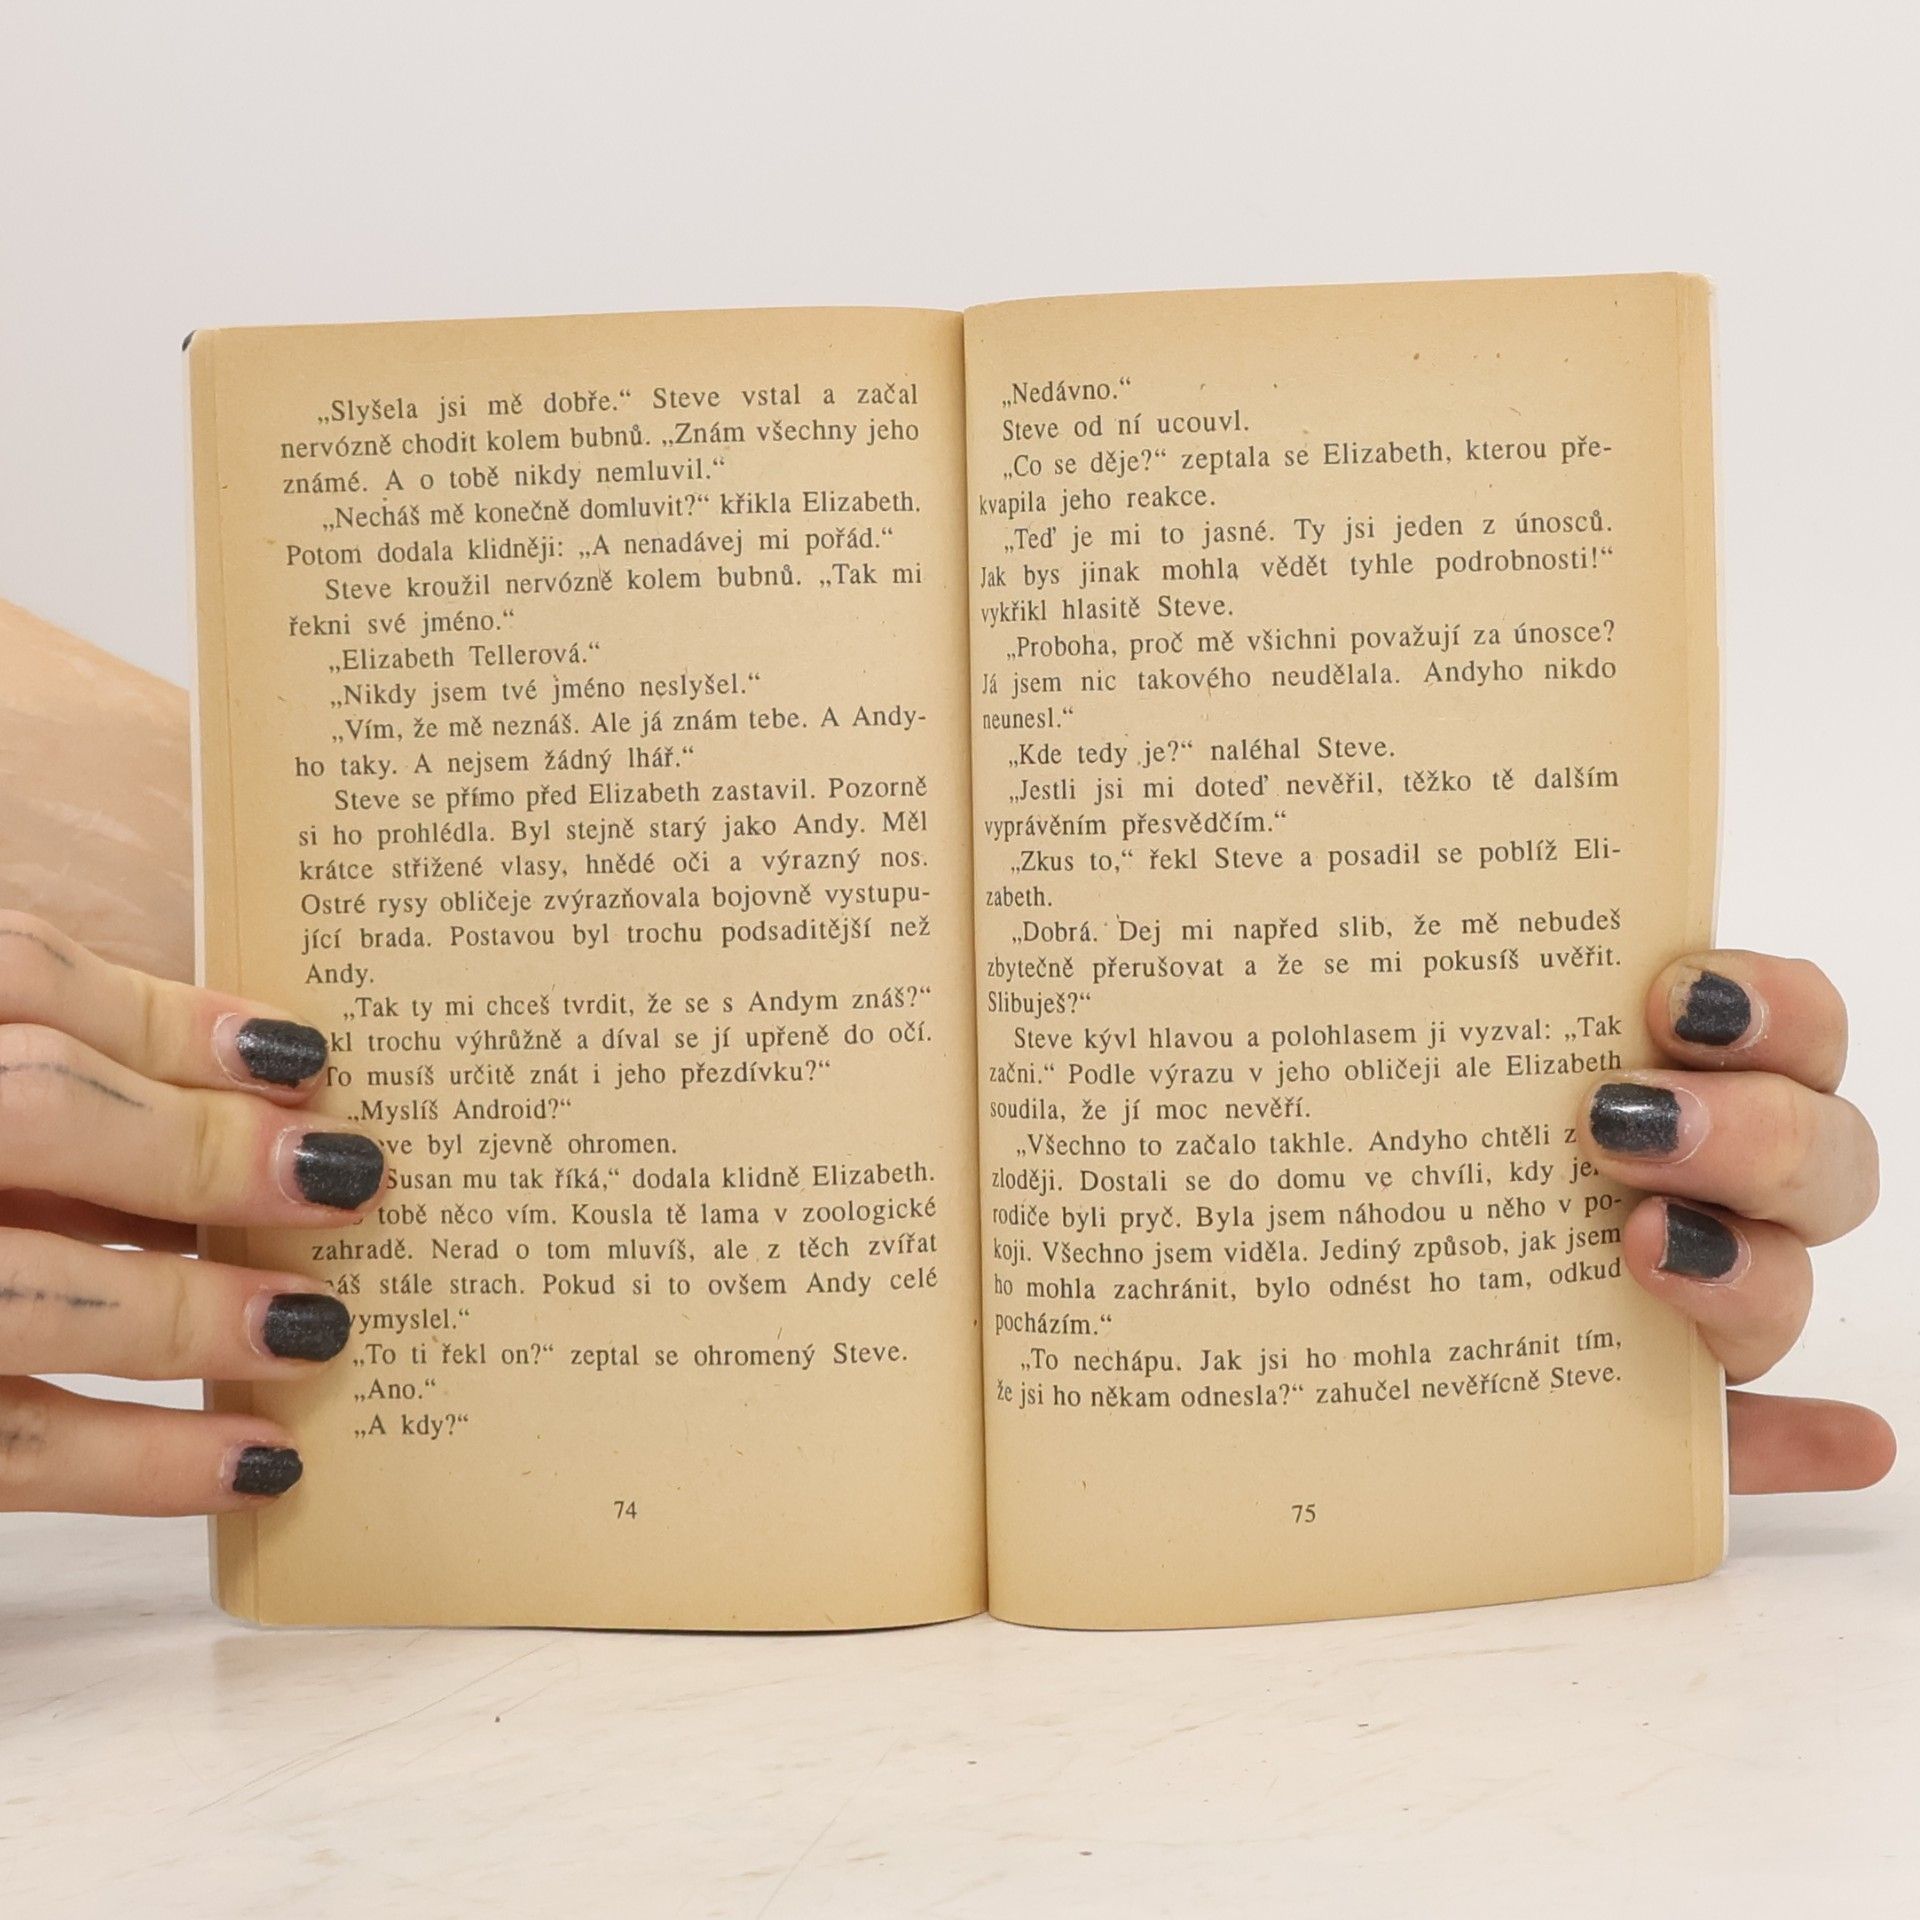 „Slyšela jsi mě dobře.“ Steve vstal a začal
nervózně chodit kolem bubnů. „Znám všechny jeho
známé. A o tobě nikdy nemluvil.“
„Necháš mě konečně domluvit?“ křikla Elizabeth.
Potom dodala klidněji: „A nenadávej mi pořád.“
Steve kroužil nervózně kolem bubnů. „Tak mi
řekni své jméno.“
„Elizabeth Tellerová.“
„Nikdy jsem tvé jméno neslyšel.“
„Vím, že mě neznáš. Ale já znám tebe. A Andy-
ho taky. A nejsem žádný lhář.“
Steve se přímo před Elizabeth zastavil. Pozorně
si ho prohlédla. Byl stejně starý jako Andy. Měl
krátce střižené vlasy, hnědé oči a výrazný nos.
Ostré rysy obličeje zvýrazňovala bojovně vystupu-
jící brada. Postavou byl trochu podsaditější než
Andy.
„Tak ty mi chceš tvrdit, že se s Andym znáš?“
trochu výhrůžně a díval se jí upřeně do očí.
To musíš určitě znát i jeho přezdívku?“
„Myslíš Android?“
byl zjevně ohromen.
Susan mu tak říká,“ dodala klidně Elizabeth.
tobě něco vím. Kousla tě lama v zoologické
zahradě. Nerad o tom mluvíš, ale z těch zvířat
stále strach. Pokud si to ovšem Andy celé
vymyslel.“
„To ti řekl on?“ zeptal se ohromený Steve.
„Ano.“
„A kdy?“
74
„Nedávno.“
Steve od ní ucouvl.
„Co se děje?“ zeptala se Elizabeth, kterou pře-
kvapila jeho reakce.
„Teď je mi to jasné. Ty jsi jeden z únosců.
Jak bys jinak mohla vědět tyhle podrobnosti!“
vykřikl hlasitě Steve.
„Proboha, proč mě všichni považují za únosce?
Já jsem nic takového neudělala. Andyho nikdo
neunesl.“
„Kde tedy je?“ naléhal Steve.
„Jestli jsi mi doteď nevěřil, těžko tě dalším
vyprávěním přesvědčím.“
„Zkus to,“ řekl Steve a posadil se poblíž Eli-
zabeth.
„Dobrá. Dej mi napřed slib, že mě nebudeš
zbytečně přerušovat a že se mi pokusíš uvěřit.
Slibuješ?“
Steve kývl hlavou a polohlasem ji vyzval: „Tak
začni.“ Podle výrazu v jeho obličeji ale Elizabeth
soudila, že jí moc nevěří.
„Všechno to začalo takhle. Andyho chtěli
zloději. Dostali se do domu ve chvíli, kdy
rodiče byli pryč. Byla jsem náhodou u něho v po-
koji. Všechno jsem viděla. Jediný způsob, jak jsem
ho mohla zachránit, bylo odnést ho tam, odkud
pocházím.“
„To nechápu. Jak jsi ho mohla zachránit tím,
že jsi ho někam odnesla?“ zahučel nevěřícně Steve.
75